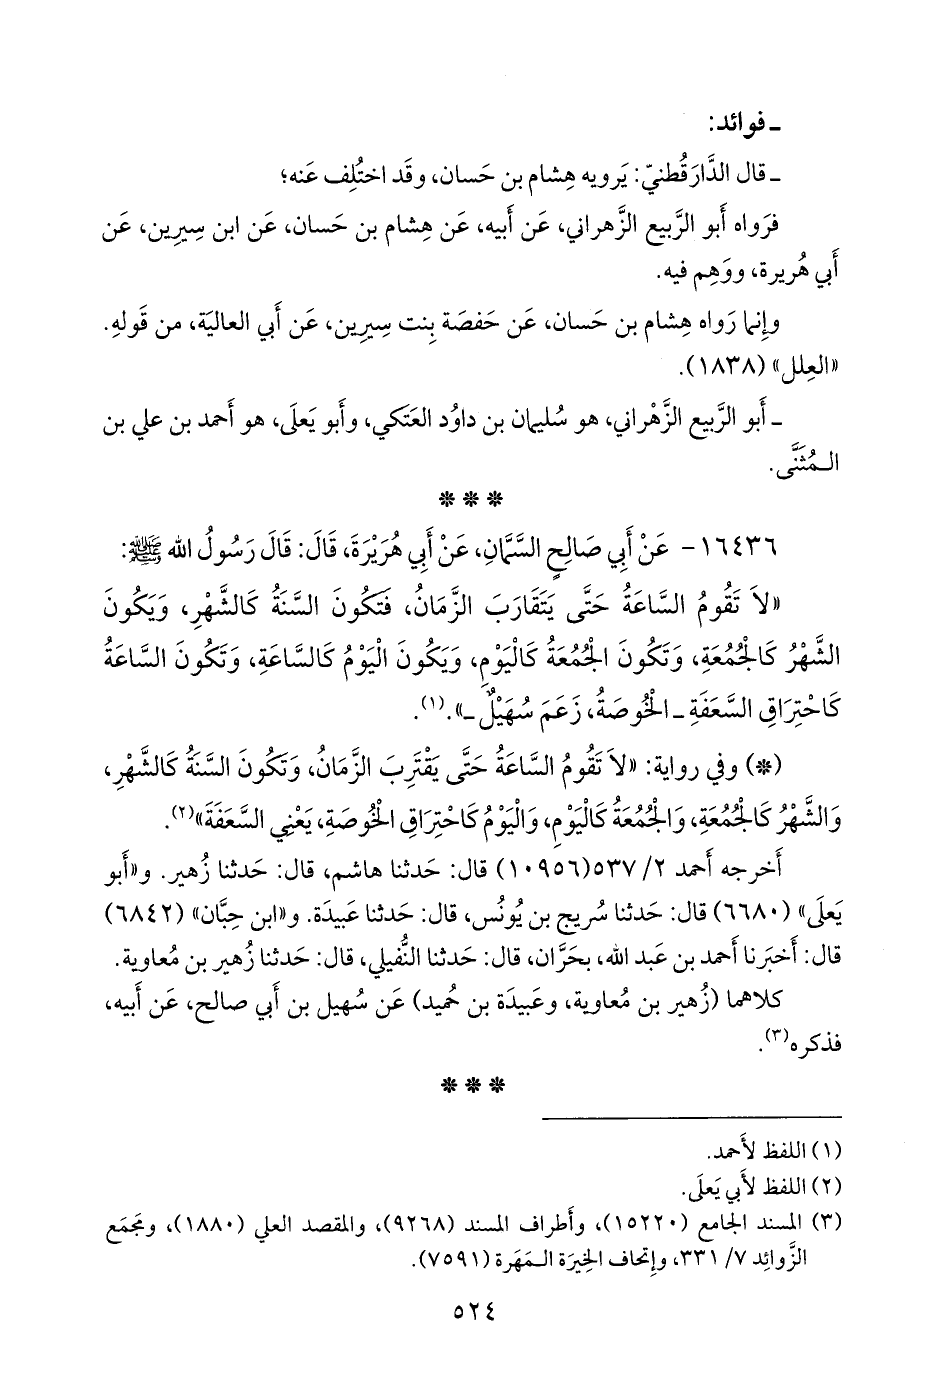 ـ فوائد:
ـ قال الدَّارَقُطنيّ: يَرويه هِشام بن حَسان، وقَد اختُلِف عَنه؛
فرَواه أَبو الرَّبيع الزَّهراني، عَن أَبيه، عَن هِشام بن حَسان، عَن ابن سِيرين، عَن
أَبي هُريرة، ووَهِم فيه.
وإِنما رَواه هِشام بن حَسان، عَن حَفصَة بِنت سِيرين، عَن أَبي العاليَة، من قَولِهِ.
«العِلل» (١٨٣٨).
ـ أَبو الرَّبيع الزَّهْراني، هو سُليمان بن داوُد العَتَكي، وأَبو يَعلَى، هو أَحمد بن علي بن
الـمُثَنَّى.
* * *
١٦٤٣٦- عَنْ أَبِي صَالِحٍ السَّمَّانِ، عَنْ أَبِي هُرَيْرَةَ، قَالَ: قَالَ رَسُولُ الله ﷺ:
«لاَ تَقُومُ السَّاعَةُ حَتَّى يَتَقَارَبَ الزَّمَانُ، فَتَكُونَ السَّنَةُ كَالشَّهْرِ، وَيَكُونَ
الشَّهْرُ كَالْجُمُعَةِ، وَتَكُونَ الْجُمُعَةُ كَالْيَوْمِ، وَيَكُونَ الْيَوْمُ كَالسَّاعَةِ، وَتَكُونَ السَّاعَةُ
كَاحْتِرَاقِ السَّعَفَةِ ـ الْخُوصَةُ، زَعَمَ سُهَيْلٌ ـ».(١).
(*) وفي رواية: «لاَ تَقُومُ السَّاعَةُ حَتَّى يَقْتَرِبَ الزَّمَانُ، وَتَكُونَ السَّنَةُ كَالشَّهْرِ،
وَالشَّهْرُ كَالْجُمُعَةِ، وَالْجُمُعَةُ كَالْيَوْمِ، وَالْيَوْمُ كَاحْتِرَاقِ الْخُوصَةِ، يَعْنِي السَّعَفَةَ»(٢).
أَخرجه أَحمد ٢/ ٥٣٧(١٠٩٥٦) قال: حَدثنا هاشم، قال: حَدثنا زُهير. و«أَبو
يَعلَى» (٦٦٨٠) قال: حَدثنا سُريج بن يُونُس، قال: حَدثنا عَبيدَة. و«ابن حِبَّان» (٦٨٤٢)
قال: أَخبَرنا أَحمد بن عَبد الله، بحَرَّان، قال: حَدثنا النُّفيلي، قال: حَدثنا زُهير بن مُعاوية.
كلاهما (زُهير بن مُعاوية، وعَبيدَة بن حُميد) عَن سُهيل بن أَبي صالح، عَن أَبيه،
فذكره(٣).
* * *
(١) اللفظ لأَحمد.
(٢) اللفظ لأَبي يَعلَى.
(٣) المسند الجامع (١٥٢٢٠)، وأَطراف المسند (٩٢٦٨)، والمقصد العلي (١٨٨٠)، ومَجمَع
الزَّوائِد ٧/ ٣٣١، وإِتحاف الخِيرَة الـمَهَرة (٧٥٩١).
٥٢٤